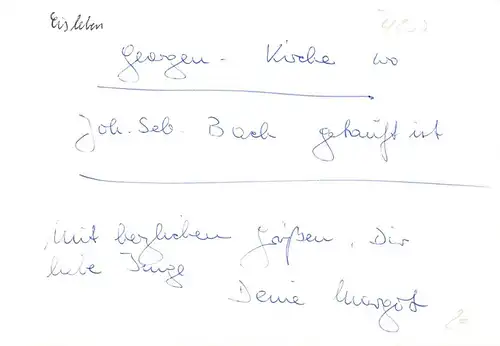 Eisleben
Georgen - Kirche wo
Joh. Seb. Bach getauft ist
Mit herzlichen Grüßen, Dir
liebe Inge
Deine Margot